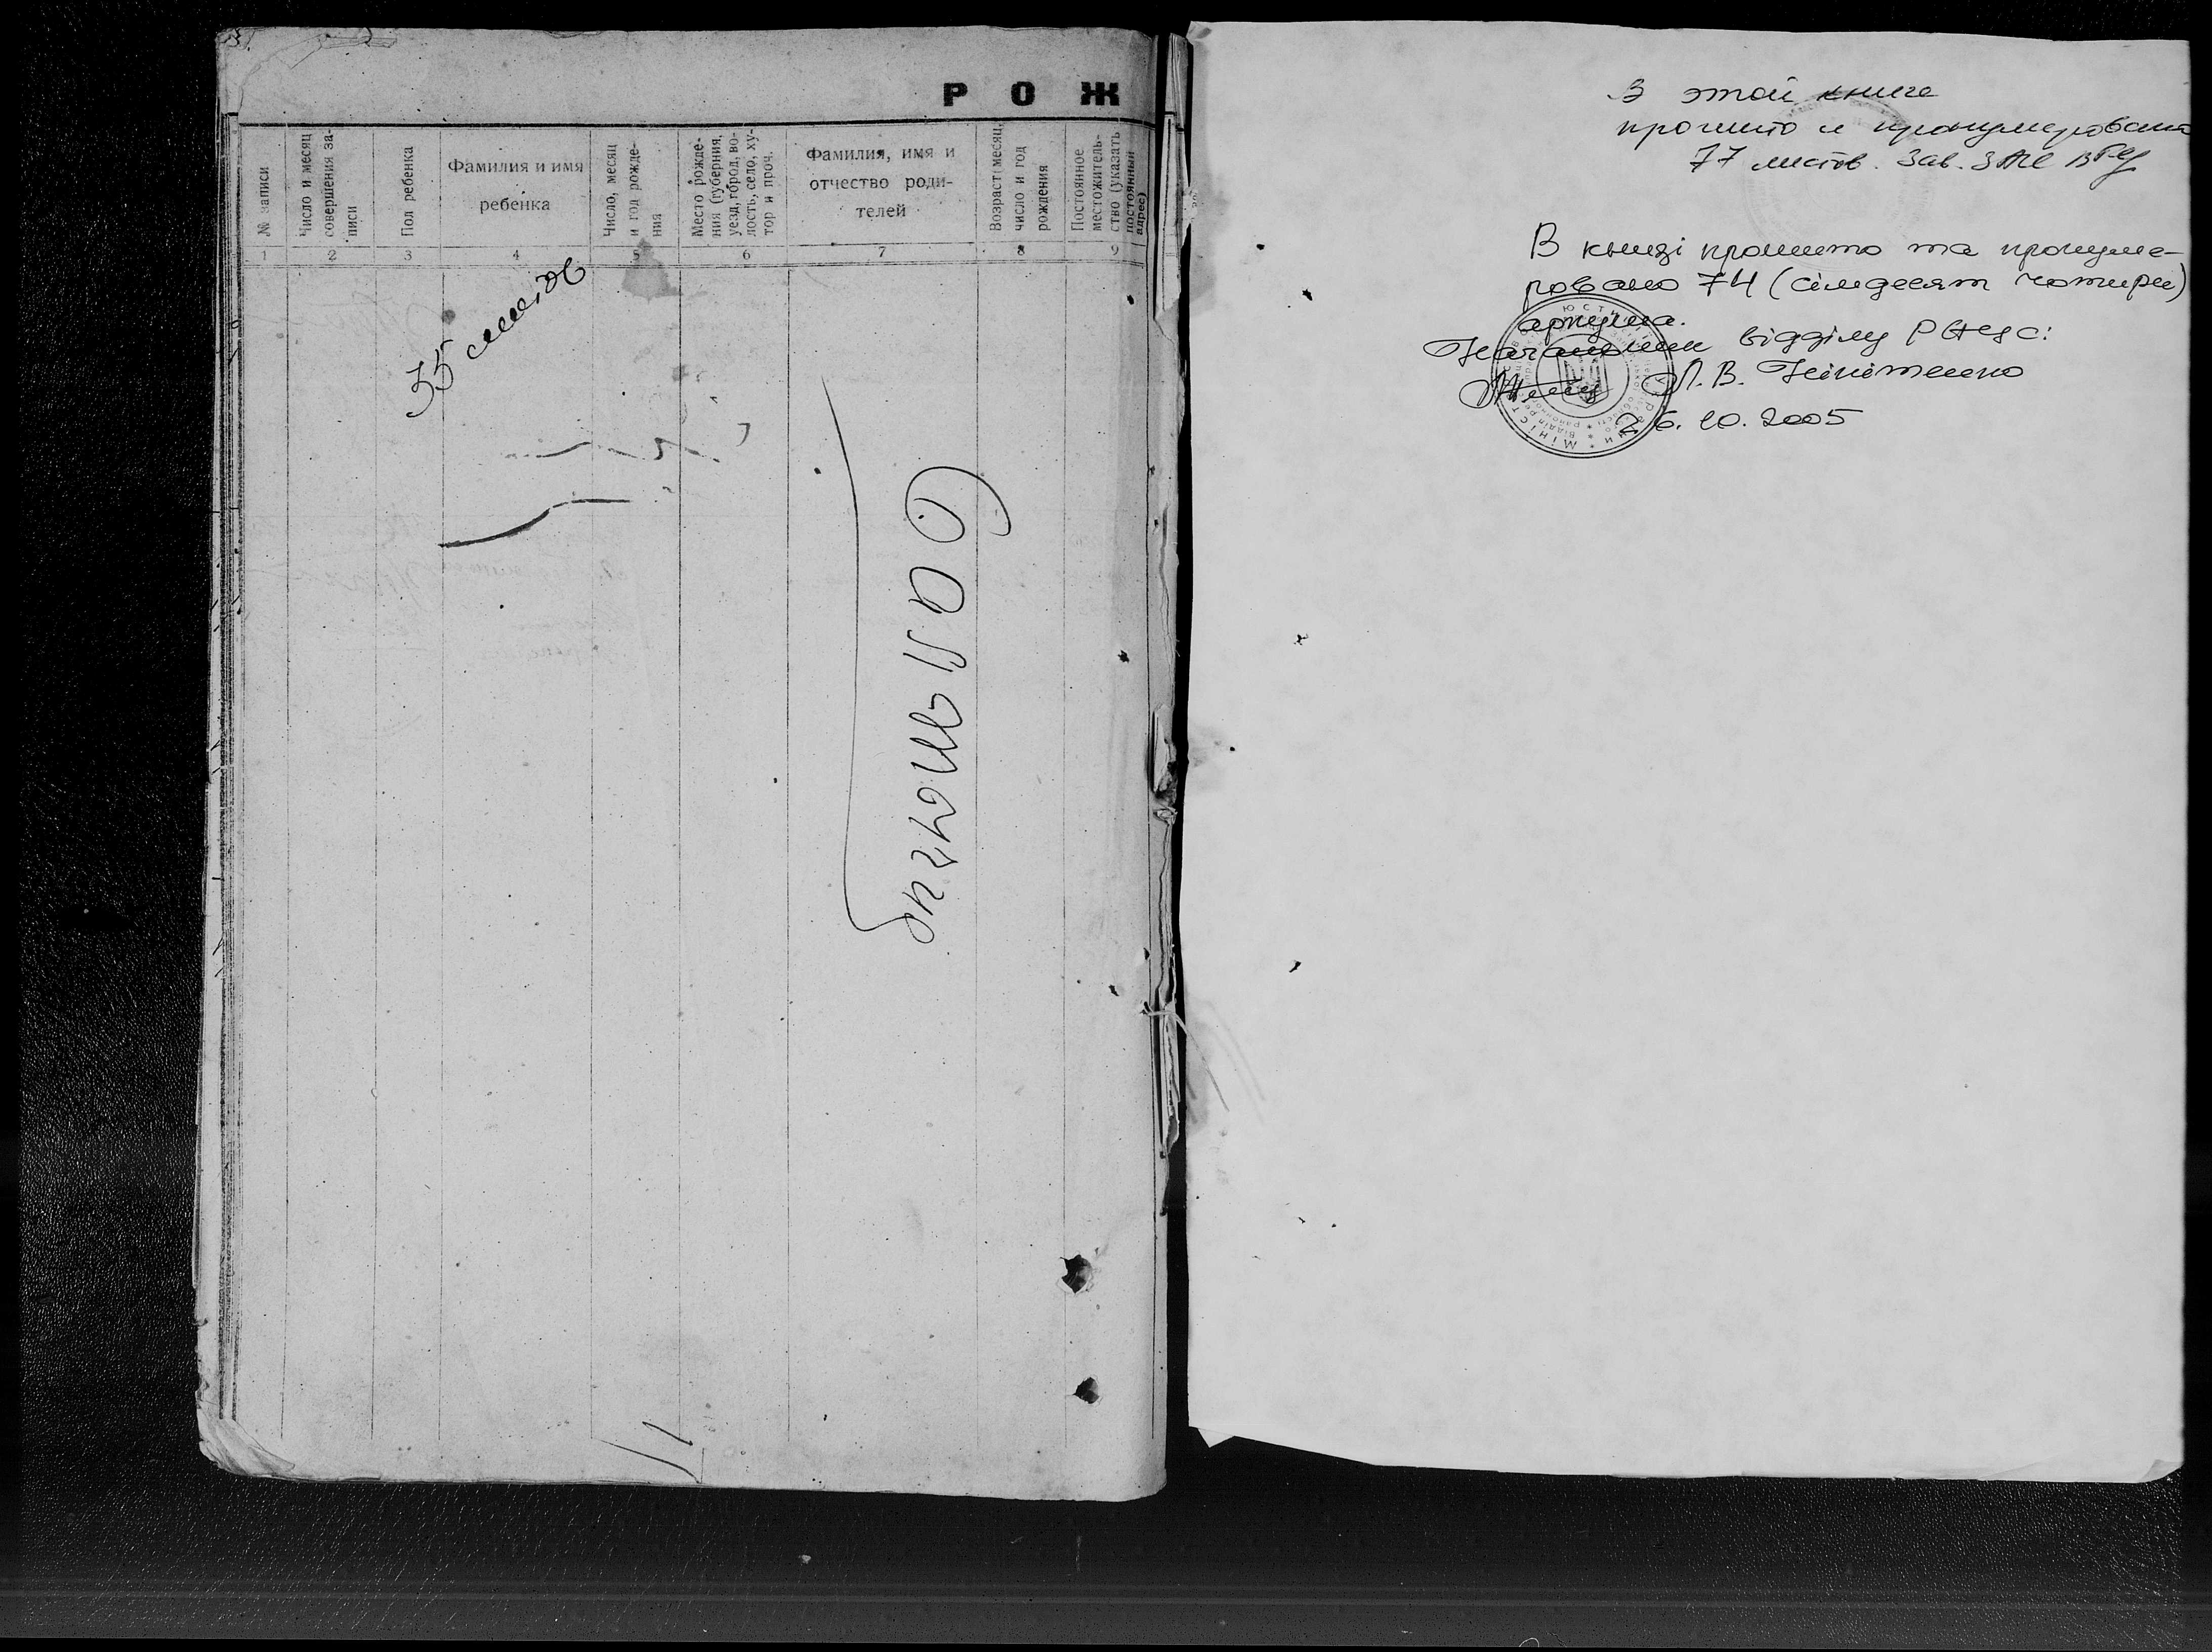 Р О Ж
№ записи
Число и месяц
совершения за-
писи
Пол ребенка
Фамилия и имя
ребенка
Число, месяц
и год рожде-
ния
Место рожде-
ния (губерния,
уезд, город, во-
лость, село, ху-
тор и проч.
Фамилия, имя и
отчество роди-
телей
Возраст: месяц,
число и год
рождения
Постоянное
местожитель-
ство (указать
постоянный
адрес)
1 2 3 4 5 6 7 8 9
35
В этой книге
прошито и пронумеровано
77 листов. Зав. ЗАГС
В книзі прошито та пронуме-
ровано 74 (сімдесят чотири)
аркуша.
Начальник відділу РАЦС:
Л. В. Нікітенко
26.10.2005